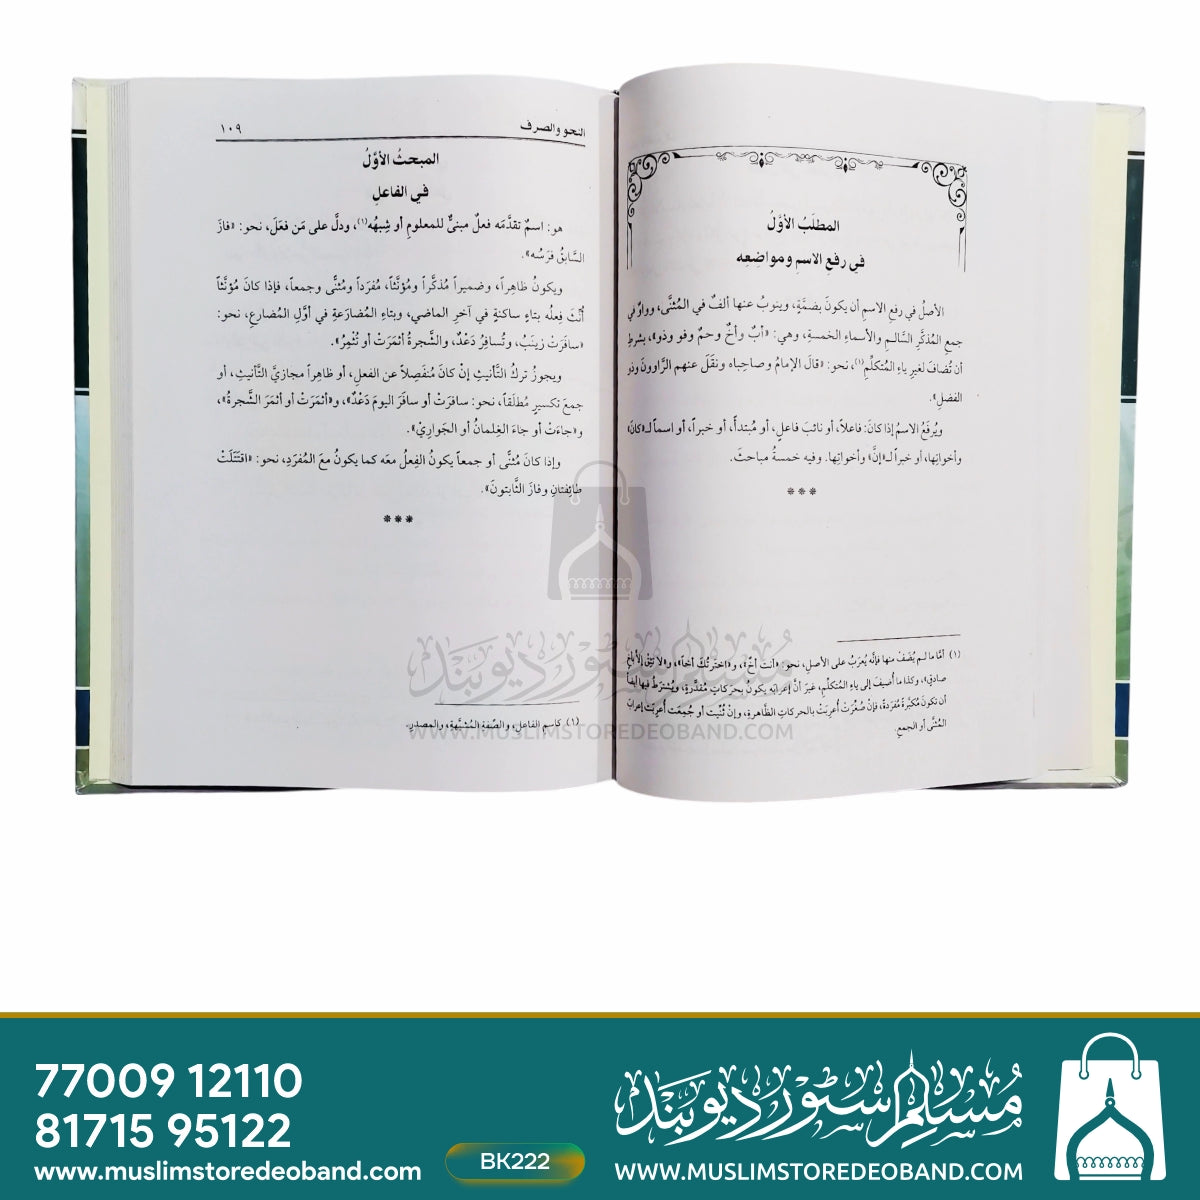 المطلَبُ الأوَّلُ
في رفعِ الاسمِ ومواضِعِه
الأصلُ في رفعِ الاسمِ أن يكونَ بضمَّةٍ، وينوبُ عنها ألفٌ في المُثنَّى، وواوٌ في
جمعِ المُذكَّرِ السَّالـمِ والأسماءِ الخمسةِ، وهي: «أبٌ وأخٌ وحمٌ وفو وذو»، بشرطِ
أن تُضافَ لغيرِ ياءِ المُتكلِّمِ(١)، نحو: «قالَ الإمامُ وصاحِباه ونقَلَ عنهم الرَّاوونَ وذو
الفضلِ».
ويُرفَعُ الاسمُ إذا كانَ: فاعلاً، أو نائبَ فاعلٍ، أو مُبتدأً، أو خبراً، أو اسماً لـ«كانَ»
وأخواتِها، أو خبراً لـ«إنَّ» وأخواتِها. وفيه خمسةُ مباحثَ.
***
(١) أمَّا ما لـم يُضَفْ منها فإنَّه يُعرَبُ على الأصلِ، نحو: «أنت أخٌ»، و«اخترتُكَ أخاً»، و«لا تَثِقْ إلاَّ بأخٍ
صادقٍ»، وكذا ما أُضيفَ إلى ياءِ المُتكلِّمِ، غيرَ أنَّ إعرابَه يكونُ بحركاتٍ مُقدَّرةٍ، ويُشترَطُ فيها أيضاً
أن تكونَ مُكبَّرةً مُفرَدةً، فإنْ صُغِّرَتْ أُعرِبَتْ بالحركاتِ الظَّاهرةِ، وإنْ ثُنِّيَت أو جُمِعَت أُعرِبَت إعرابَ
المُثنَّى أو الجمعِ.
النحو والصرف
١٠٩
المبحثُ الأوَّلُ
في الفاعلِ
هو: اسمٌ تقدَّمَه فعلٌ مبنيٌّ للمعلومِ أو شِبهُه(١)، ودلَّ على مَن فعَلَ، نحو: «فازَ
السَّابقُ فرَسُه».
ويكونُ ظاهِراً، وضميراً مُذكَّراً ومُؤنَّثاً، مُفرَداً ومُثنًّى وجمعاً، فإذا كانَ مُؤنَّثاً
أُنِّثَ فِعلُه بتاءٍ ساكنةٍ في آخرِ الماضي، وبتاءِ المُضارَعةِ في أوَّلِ المُضارعِ، نحو:
«سافَرَتْ زينَبُ، وتُسافِرُ دَعْدٌ، والشَّجرةُ أثمَرَتْ أو تُثْمِرُ».
ويجوزُ تركُ التَّأنيثِ إنْ كانَ مُنفَصِلاً عن الفعلِ، أو ظاهِراً مجازيَّ التَّأنيثِ، أو
جمعَ تكسيرٍ مُطلَقاً، نحو: سافرَتْ أو سافَرَ اليومَ دَعْدٌ»، و«أثمَرَتْ أو أثمَرَ الشَّجرةُ»،
و«جاءَتْ أو جاءَ الغِلمانُ أو الجَواريْ».
وإذا كانَ مُثنًّى أو جمعاً يكونُ الفِعلُ معَه كما يكونُ معَ المُفرَدِ، نحو: «اقتَتَلَتْ
طائِفتانِ وفازَ الثَّابتونَ».
***
(١) كاسمِ الفاعلِ، والصِّفةِ المُشبَّهةِ، والمصدرِ.
مُسلِم سٹور دیوبند
WWW.MUSLIMSTOREDEOBAND.COM
77009 12110
81715 95122
www.muslimstoredeoband.com
BK222
مُسلِم سٹور دیوبند
WWW.MUSLIMSTOREDEOBAND.COM